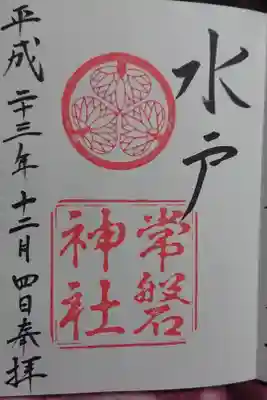 水戸
常磐
神社
平成二十三年十二月四日奉拝